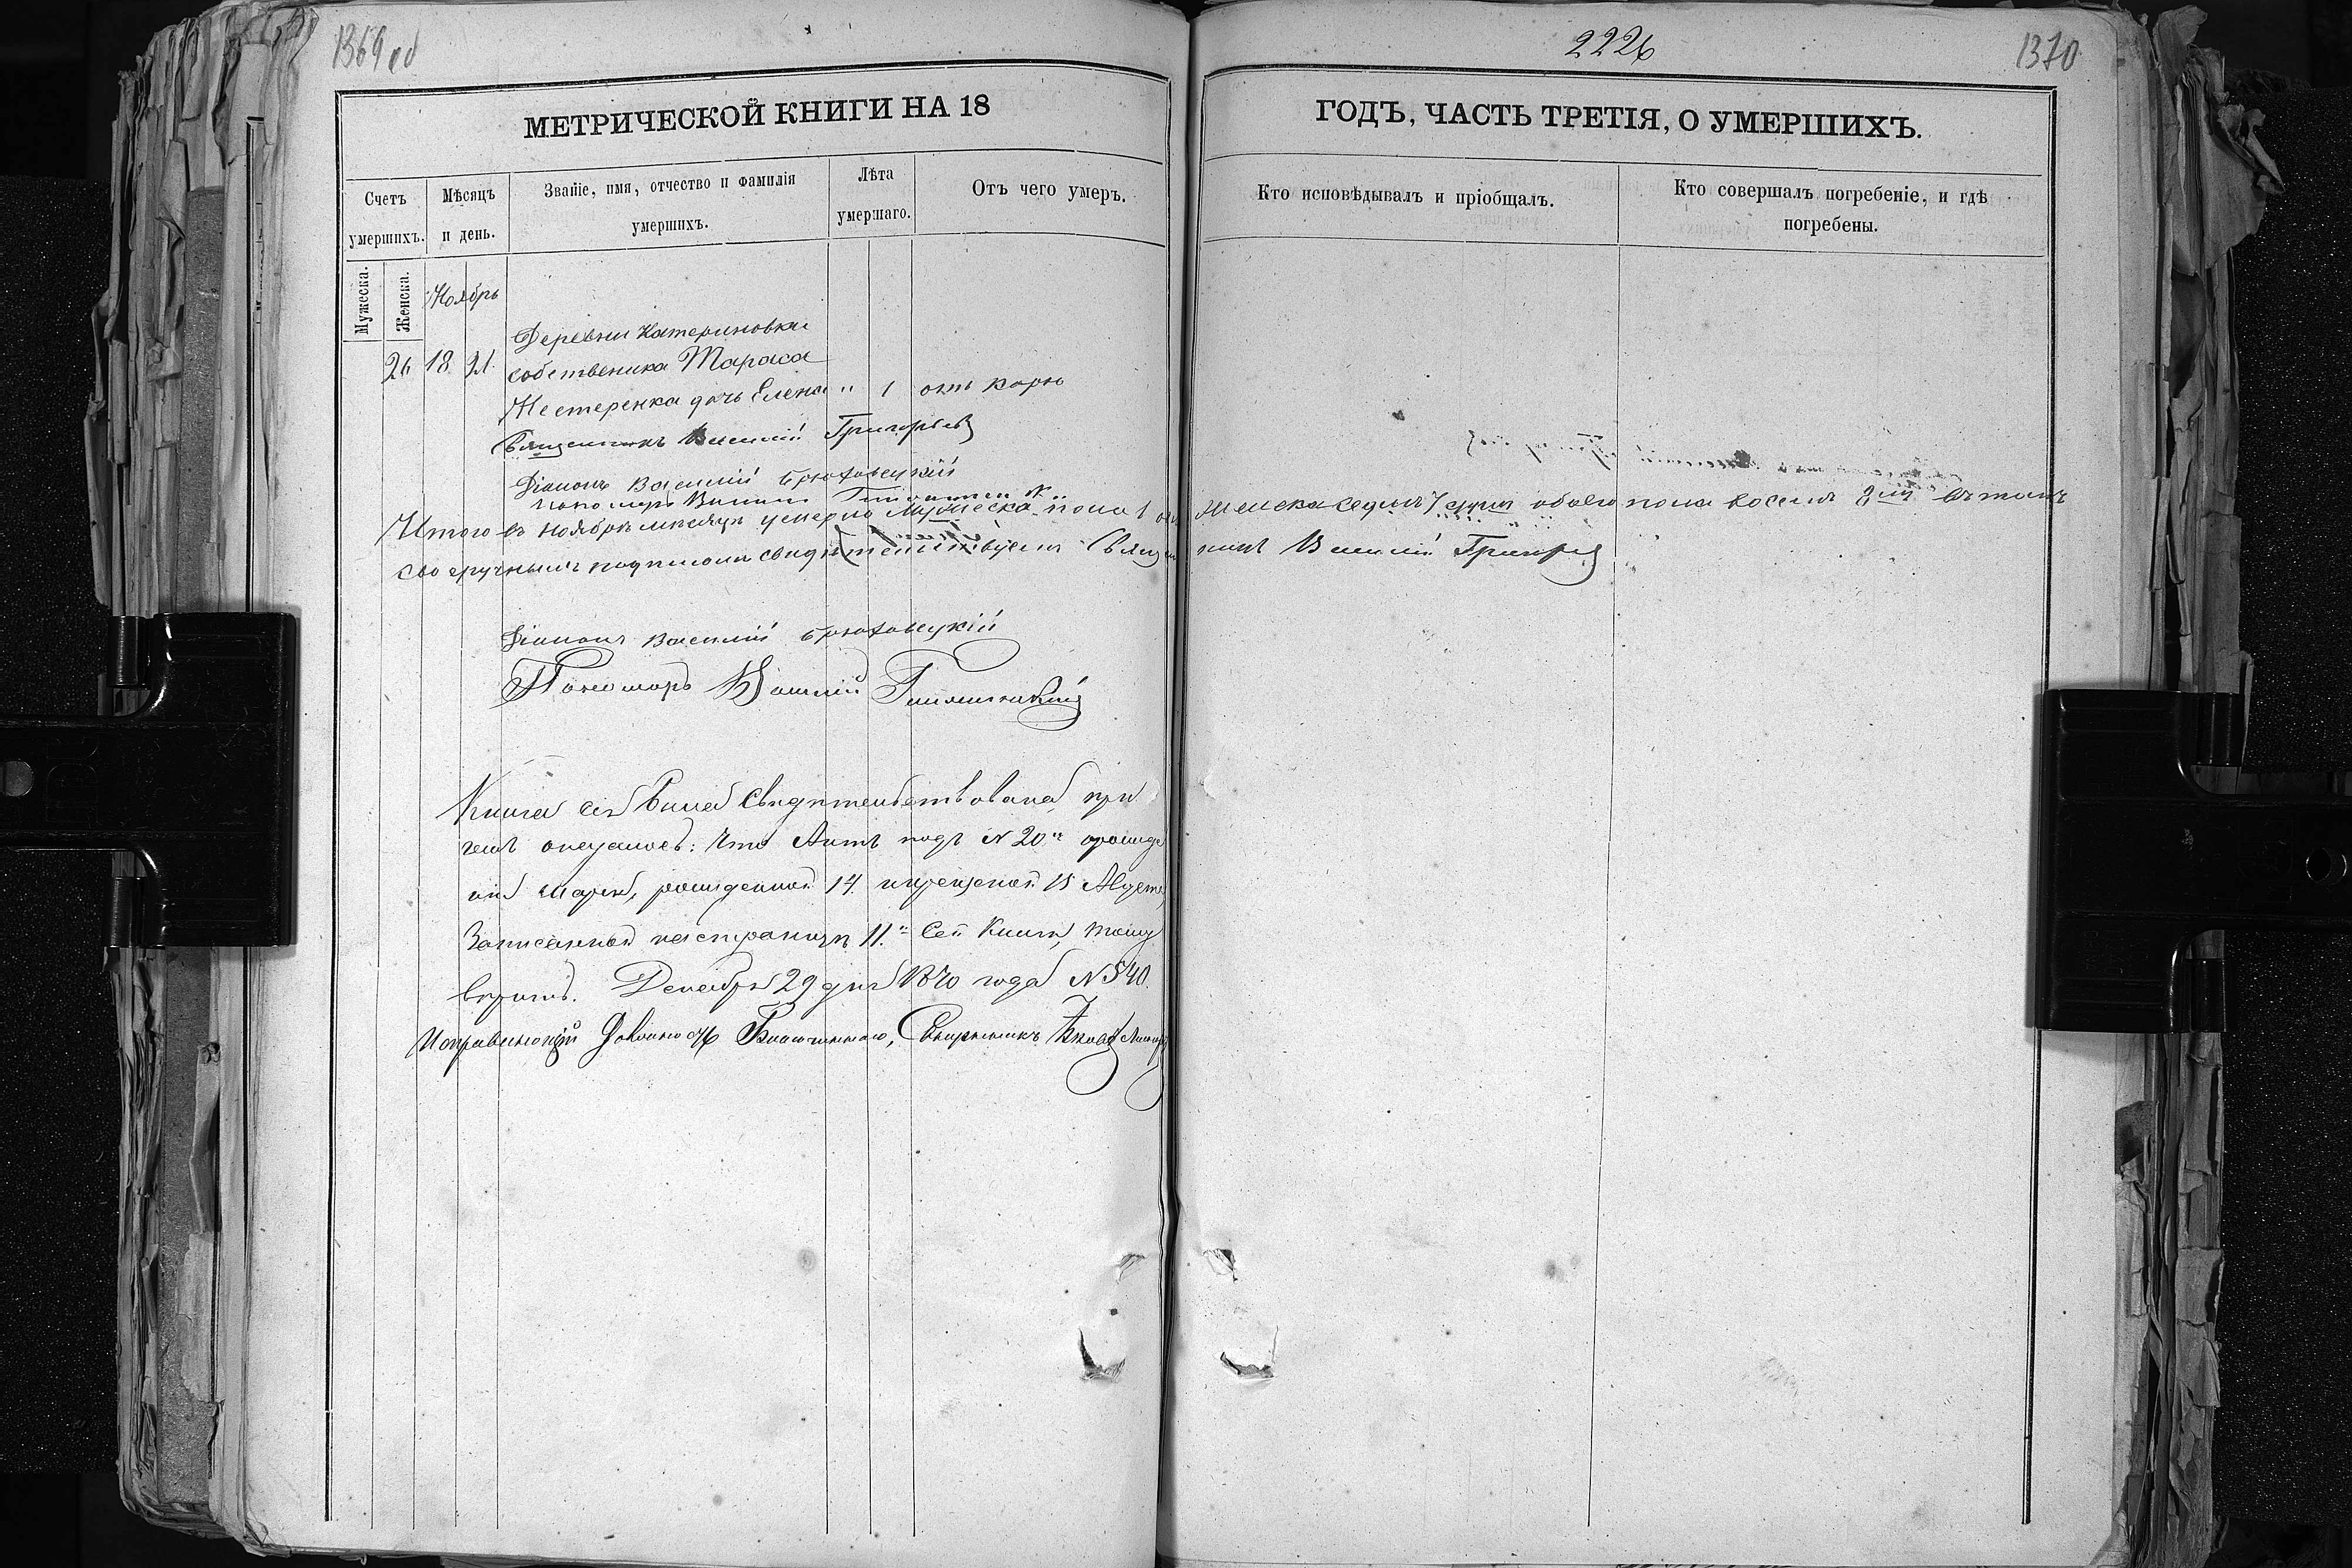 1369 об
2226
1370
МЕТРИЧЕСКОЙ КНИГИ НА 18
ГОДЪ, ЧАСТЬ ТРЕТІЯ, О УМЕРШИХЪ.
Счетъ умершихъ.
Мѣсяцъ и день.
Званіе, имя, отчество и фамилія умершихъ.
Лѣта умершаго.
Отъ чего умеръ.
Кто исповѣдывалъ и пріобщалъ.
Кто совершалъ погребеніе, и гдѣ погребены.
Мужеска.
Женска.
Ноябрь
Деревни Катериновки
26 18 21 собственика Тараса
Нестеренка дочь Елена " 1 отъ кори
Священникъ Василій Григорьев
Діаконъ Василій Брюховецкій
Пономарь Василій
Итого въ Ноябрѣ мѣсяцѣ умерло мужеска пола 1 женска седмъ 7 обоего пола восемъ 8мъ въ томъ
своеручнымъ подписомъ свидѣтельствуемъ Священникъ Василій
Діаконъ Василій Брюховецкій
Пономарь Василій
Книга сія была свидѣтельствована, при
чемъ оказалось: что Актъ подъ N 20м о рожде
ніи Маріи, рожденной 14 крещеной 15 Августа
Записанной на страницѣ 11й Сей Книги,
Декабря 29 дня 1870 года N 540.
Исправляющій Должность Благочиннаго, Священникъ